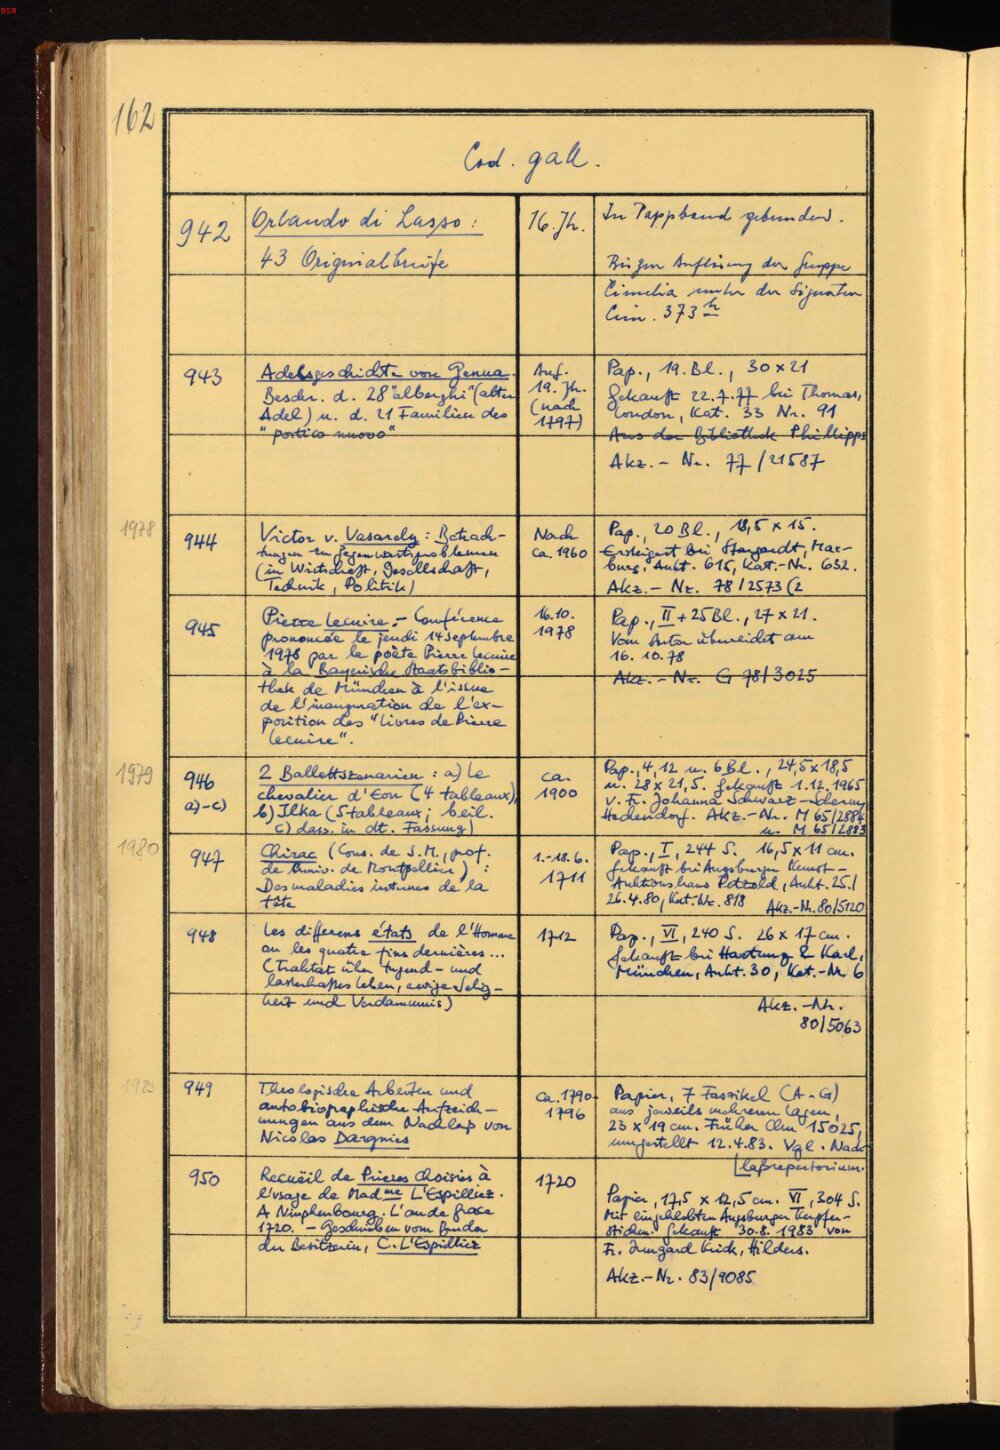 BSB
162
Cod. gall.
942
Orlando di Lasso:
43 Originalbriefe
16. Jh.
In Pappband gebunden.
Bis zur Auflösung der Gruppe
Cimelia unter der Signatur
Cim. 373 h
943
Adelsgeschichte von Genua.
Beschr. d. 28 "alberghi" (alter
Adel) u. d. 21 Familien des
"portico nuovo"
Anf.
19. Jh.
(nach
1797)
Pap., 19. Bl., 30 x 21
Gekauft 22.7.77 bei Thomas,
London, Kat. 33 Nr. 91
Aus der Bibliothek Phillipps
Akz.- Nr. 77/21587
1978
944
Victor v. Vasarely: Betrach-
tungen zu Gegenwartsproblemen
(in Wirtschaft, Gesellschaft,
Technik, Politik)
Nach
ca. 1960
Pap., 20 Bl., 18,5 x 15.
Ersteigert bei Stargardt, Mar-
burg, Aukt. 615, Kat.-Nr. 632.
Akz.- Nr. 78/2573 (2
945
Pierre Lecuire.- Conférence
prononcée le jeudi 14 septembre
1978 par le poète Pierre Lecuire
à la Bayerische Staatsbiblio-
thek de München à l'issue
de l'inauguration de l'ex-
position des "livres de Pierre
Lecuire".
16.10.
1978
Pap., II + 25 Bl., 27 x 21.
Vom Autor überreicht am
16. 10. 78
Akz.- Nr. G 78/3025
1979
946
a)-c)
2 Ballettszenarien: a) Le
chevalier d'Eon (4 tableaux),
b) Ilka (5 tableaux; beil.
c) dass. in dt. Fassung)
ca.
1900
Pap., 4, 12 u. 6 Bl., 24,5 x 18,5
u. 28 x 21,5. Gekauft 1.12.1965
v. Fr. Johanna Schwarz-
Hechendorf. Akz.-Nr. M 65/2884
u. M 65/2883
1980
947
Chirac (Cons. de S.M., prof.
de l'univ. de Montpellier):
Des maladies internes de la
tête
1.-18.6.
1711
Pap., I, 244 S. 16,5 x 11 cm.
Gekauft bei Augsburger Kunst-
Auktionshaus Petzold, Aukt. 25./
26.4.80, Kat.-Nr. 818
Akz.-Nr. 80/5120
948
Les differens états de l'Homme
ou les quatre fins dernières...
(Traktat über tugend- und
lasterhaftes Leben, ewige Selig-
keit und Verdammnis)
1712
Pap., VI, 240 S. 26 x 17 cm.
Gekauft bei Hartung & Karl,
München, Aukt. 30, Kat.-Nr. 6
Akz.-Nr.
80/5063
949
Theologische Arbeiten und
autobiographische Aufzeich-
nungen aus dem Nachlaß von
Nicolas Dargnies
ca. 1790-
1796
Papier, 7 Faszikel (A-G)
aus jeweils mehreren Lagen,
23 x 19 cm. Früher Clm 15025,
umgestellt 12.4.83. Vgl. Nach-
laßrepertorium.
950
Recueil de Prieres Choisies à
l'usage de Madme L'Espilliez.
A Nimphenbourg. L'an de grace
1720. - Geschrieben vom Bruder
der Besitzerin, C. L'Espilliez
1720
Papier, 17,5 x 12,5 cm. VI, 304 S.
Mit eingeklebten Augsburger Kupfer-
stichen. Gekauft 30.8.1983 von
Fr. Irmgard Kück, Hilders.
Akz.- Nr. 83/9085